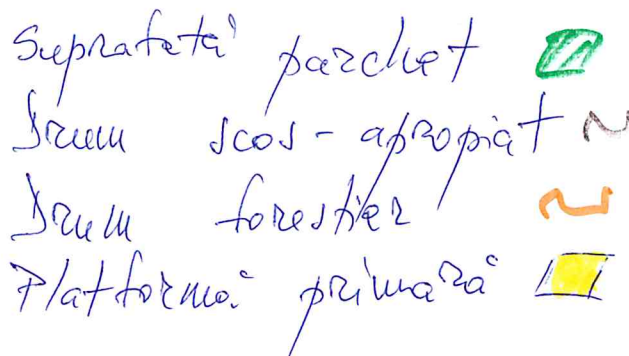 Suprafată parchet
Drum scos-apropiat
Drum forestier
Platformă primară